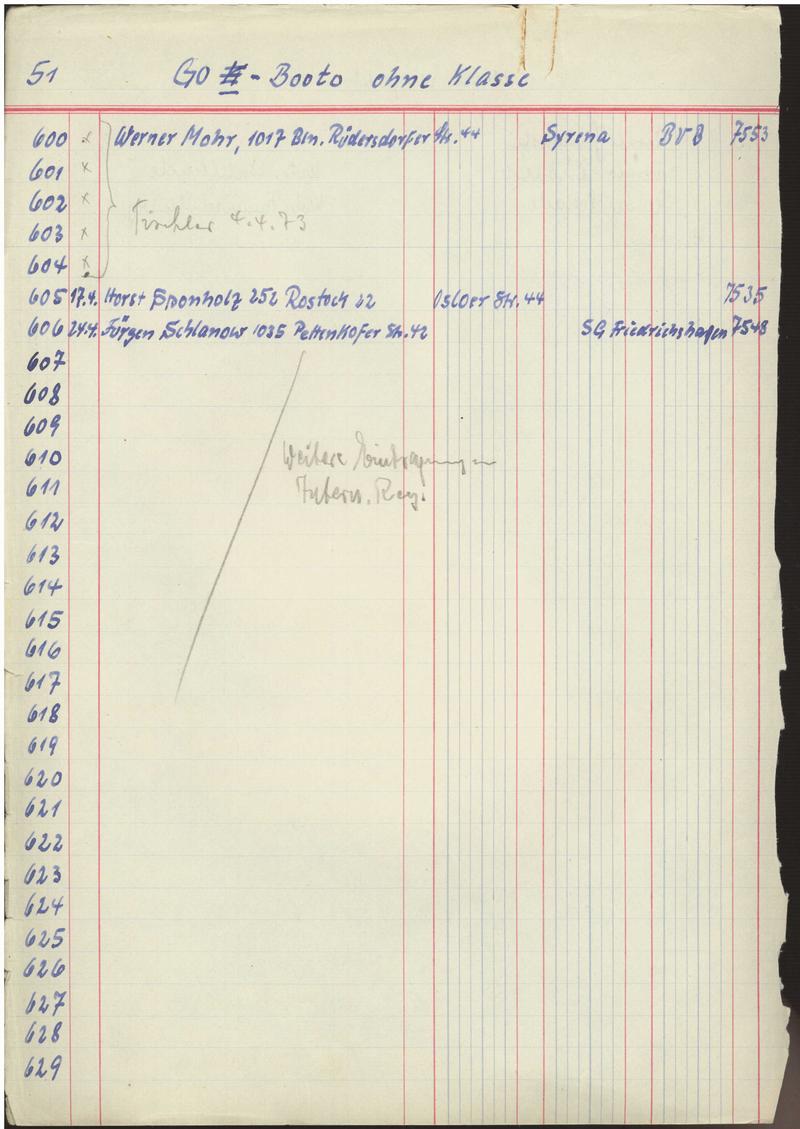 51 GO II - Boote ohne Klasse
600 x Werner Mohr, 1017 Bln. Rüdersdorfer Str. 44 Syrena BVB 7553
601 x
602 x
Tischler 4.4.73
603 x
604 x
605 17.4. Horst Sponholz 252 Rostock 22 Osloer Str. 44 7535
606 24.4. Jürgen Schlanow 1035 Pettenkofer Str. 42 SG Friedrichshagen 7548
607
608
609
610 Weitere Eintragungen
611 Intern. Reg.
612
613
614
615
616
617
618
619
620
621
622
623
624
625
626
627
628
629